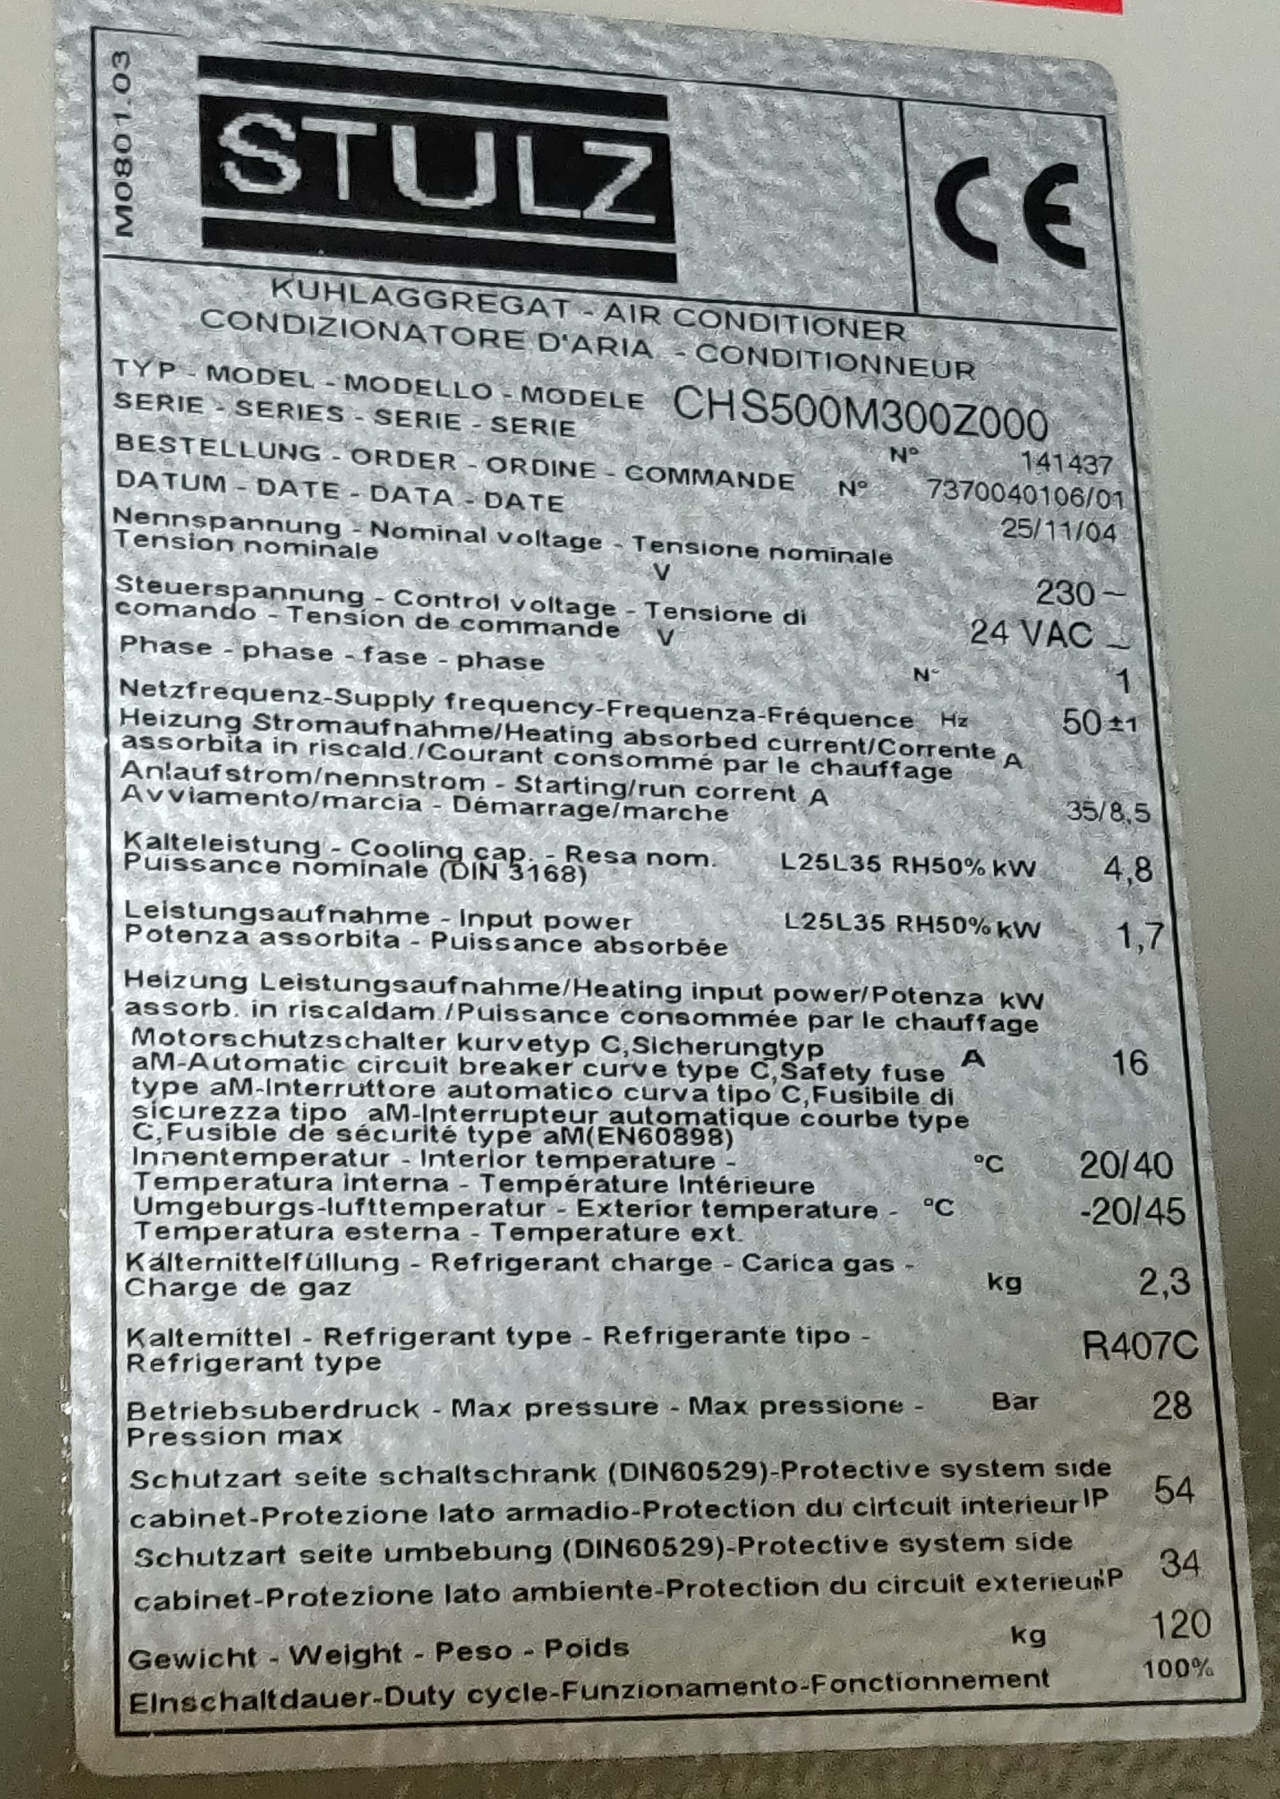 M0801.03
STULZ
CE
KUHLAGGREGAT - AIR CONDITIONER
CONDIZIONATORE D'ARIA - CONDITIONNEUR
TYP - MODEL - MODELLO - MODELE CHS500M300Z000
SERIE - SERIES - SERIE - SERIE N° 141437
BESTELLUNG - ORDER - ORDINE - COMMANDE N° 7370040106/01
DATUM - DATE - DATA - DATE 25/11/04
Nennspannung - Nominal voltage - Tensione nominale
Tension nominale V 230~
Steuerspannung - Control voltage - Tensione di
comando - Tension de commande V 24 VAC ~
Phase - phase - fase - phase N° 1
Netzfrequenz-Supply frequency-Frequenza-Fréquence Hz 50±1
Heizung Stromaufnahme/Heating absorbed current/Corrente A
assorbita in riscald./Courant consommé par le chauffage
Anlaufstrom/nennstrom - Starting/run corrent A
Avviamento/marcia - Démarrage/marche 35/8,5
Kalteleistung - Cooling cap. - Resa nom. L25L35 RH50% kW 4,8
Puissance nominale (DIN 3168)
Leistungsaufnahme - Input power L25L35 RH50% kW 1,7
Potenza assorbita - Puissance absorbée
Heizung Leistungsaufnahme/Heating input power/Potenza kW
assorb. in riscaldam./Puissance consommée par le chauffage
Motorschutzschalter kurvetyp C,Sicherungtyp A 16
aM-Automatic circuit breaker curve type C,Safety fuse
type aM-Interruttore automatico curva tipo C,Fusibile di
sicurezza tipo aM-Interrupteur automatique courbe type
C,Fusible de sécurité type aM(EN60898)
Innentemperatur - Interior temperature - °C 20/40
Temperatura interna - Température Intérieure
Umgeburgs-lufttemperatur - Exterior temperature - °C -20/45
Temperatura esterna - Temperature ext.
Kälternittelfüllung - Refrigerant charge - Carica gas -
Charge de gaz kg 2,3
Kaltemittel - Refrigerant type - Refrigerante tipo - R407C
Refrigerant type
Betriebsuberdruck - Max pressure - Max pressione - Bar 28
Pression max
Schutzart seite schaltschrank (DIN60529)-Protective system side
cabinet-Protezione lato armadio-Protection du cirtcuit interieur IP 54
Schutzart seite umbebung (DIN60529)-Protective system side
cabinet-Protezione lato ambiente-Protection du circuit exterieur IP 34
Gewicht - Weight - Peso - Poids kg 120
EInschaltdauer-Duty cycle-Funzionamento-Fonctionnement 100%